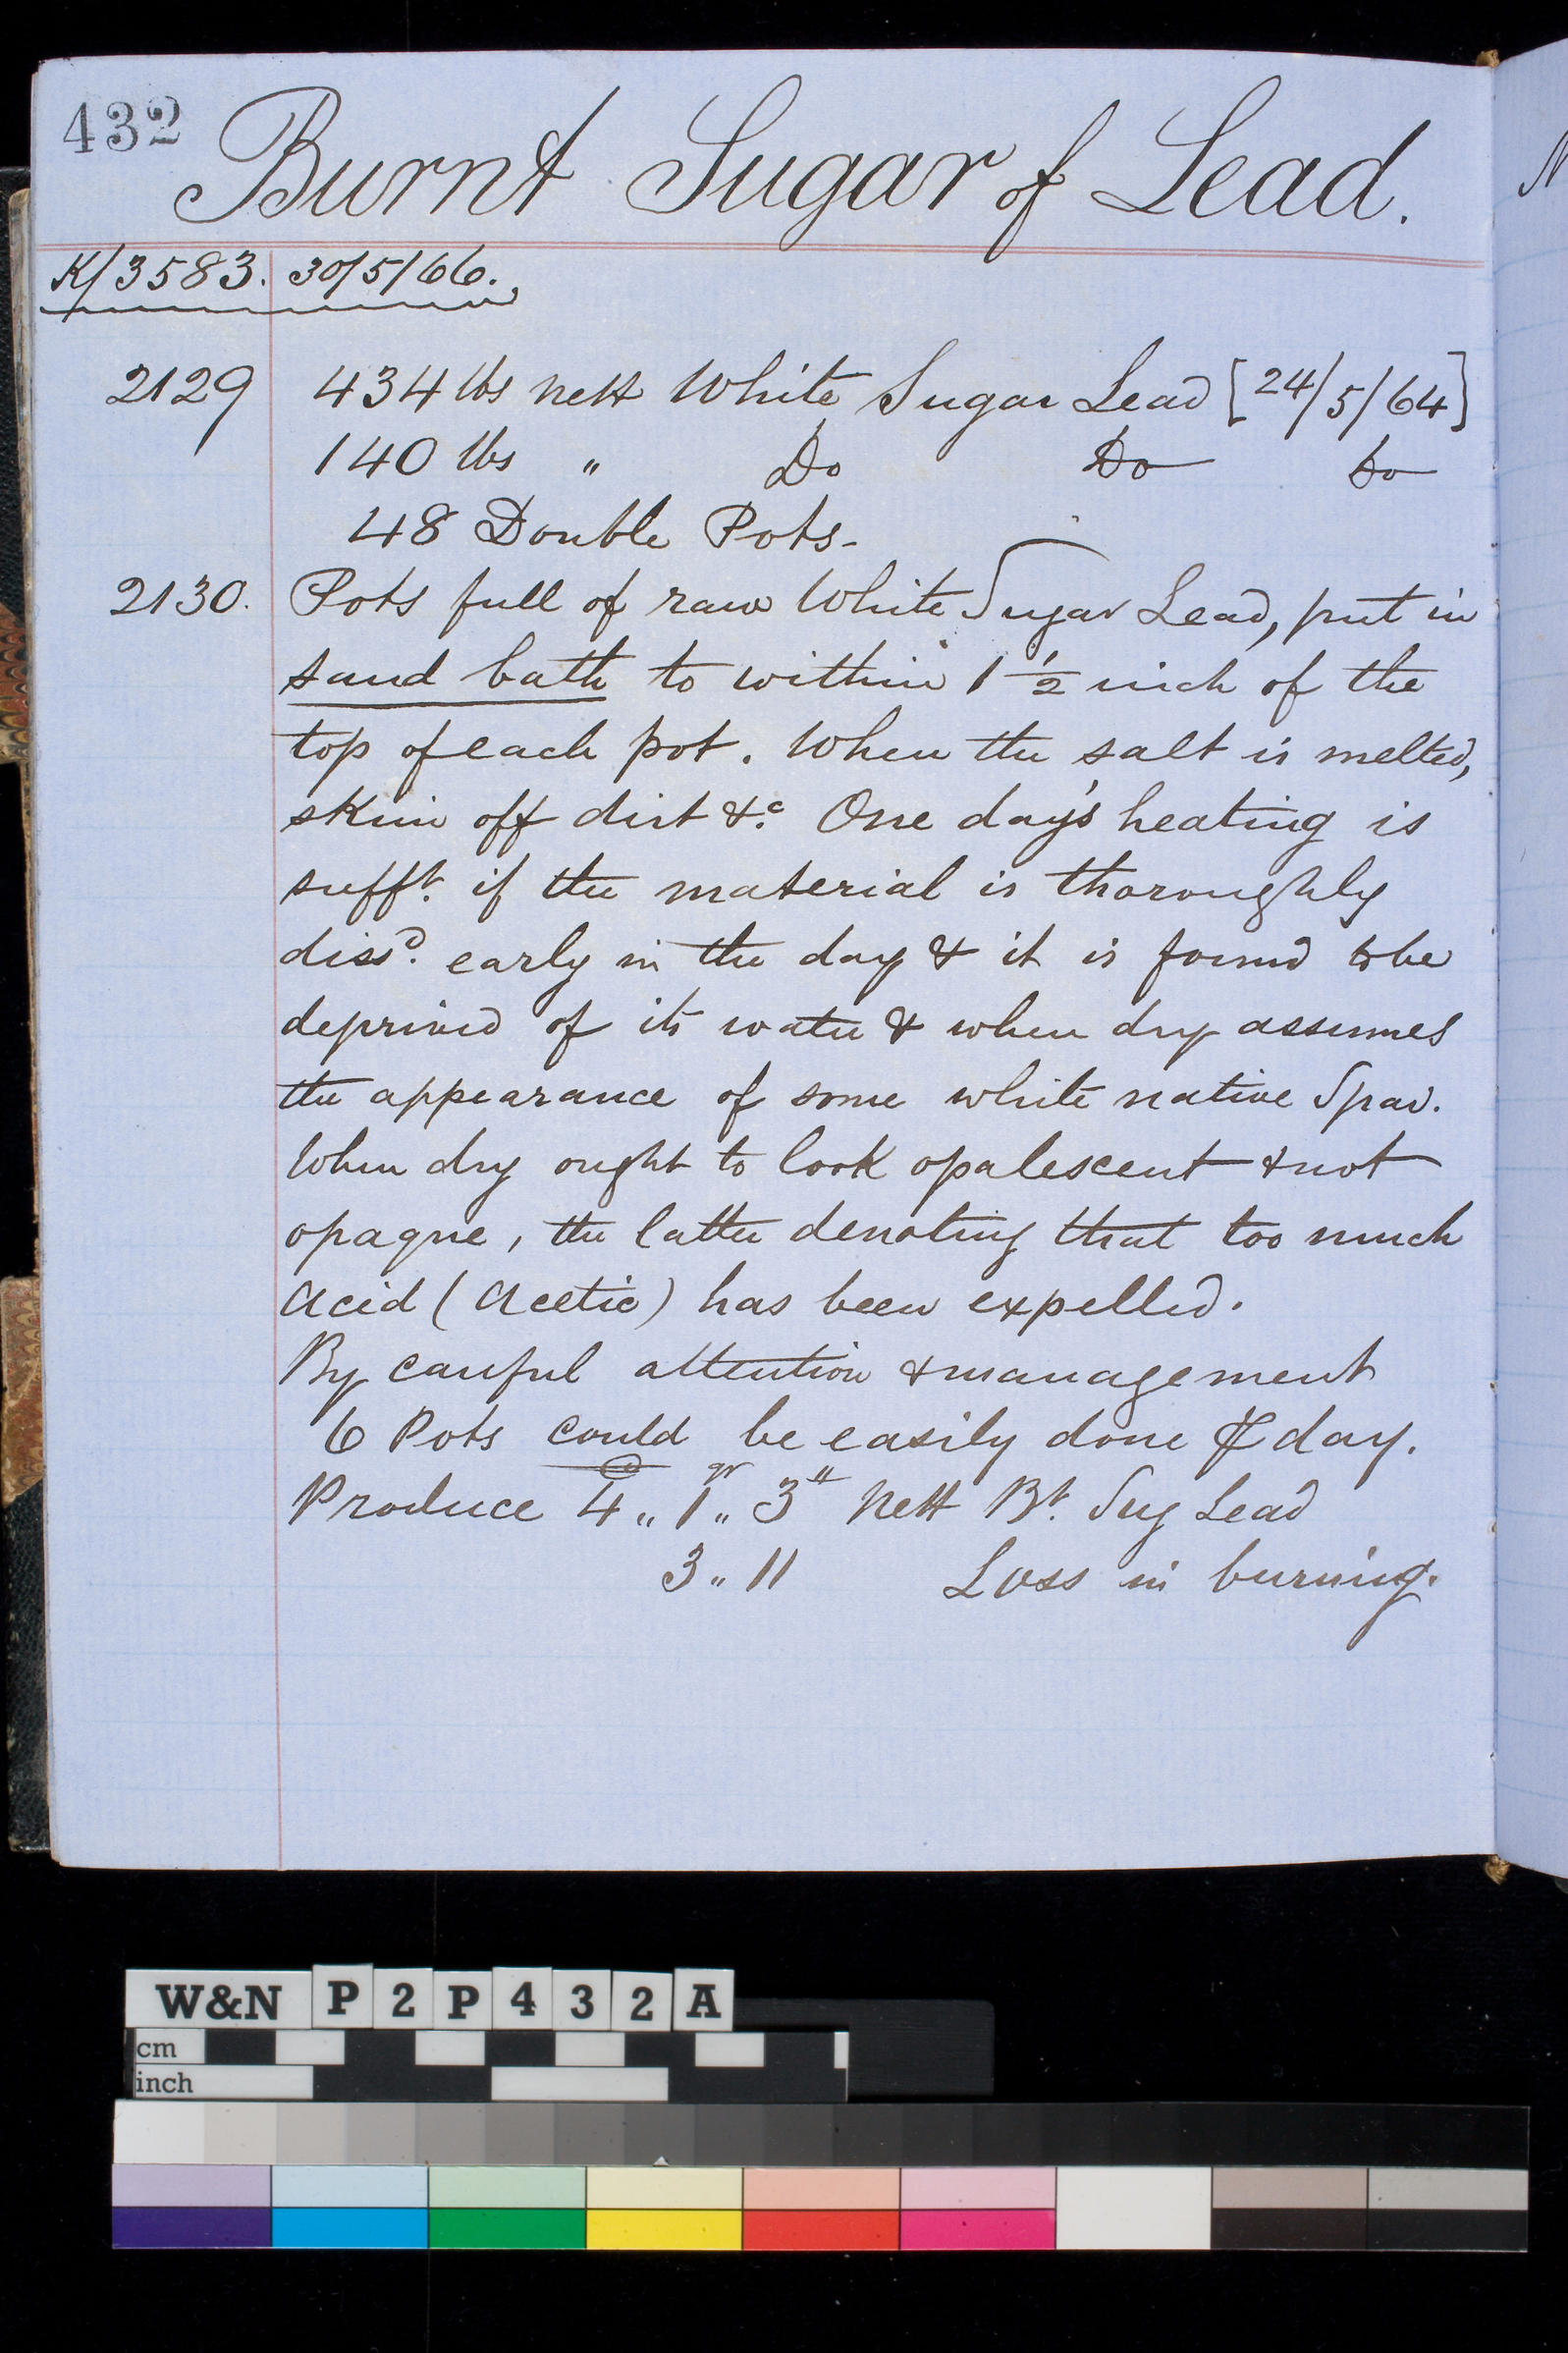 432
Burnt Sugar of Lead.
K/3583. 30/5/66.
2129 434 lbs nett White Sugar Lead [24/5/64]
140 lbs " Do Do Do
48 Double Pots-
2130. Pots full of raw White Sugar Lead, put in
sand bath to within 1 1/2 inch of the
top of each pot. When the salt is melted,
skim off dirt &c. One day's heating is
sufft. if the material is thoroughly
dissd. early in the day & it is found to be
deprived of its water & when dry assumes
the appearance of some white native Spar.
When dry ought to look opalescent & not
opaque, the latter denoting that too much
acid (Acetic) has been expelled.
By careful attention & management
6 Pots could be easily done ⅌ day.
Produce 4 „ 1 qr „ 3 " nett Bt. Sug Lead
3 „ 11 Loss in burning.
W&N P2P432A
cm
inch